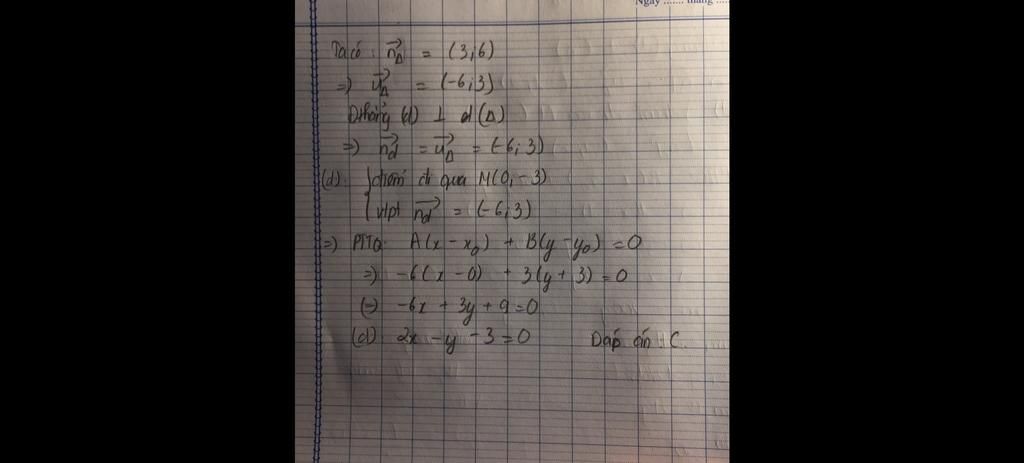 Ngày ....... tháng ....
Ta có : n⃗_Δ = (3;6)
=) u⃗_Δ = (-6;3)
Đthẳng (d) ⊥ d(Δ)
=) n⃗_d = u⃗_Δ = (-6;3)
(d): { điểm đi qua M(0,-3)
{ vtpt n⃗_d = (-6;3)
=) PTTQ: A(x - x₀) + B(y - y₀) = 0
=) -6(x - 0) + 3(y + 3) = 0
(=) -6x + 3y + 9 = 0
(d) 2x - y - 3 = 0 Đáp án : C.